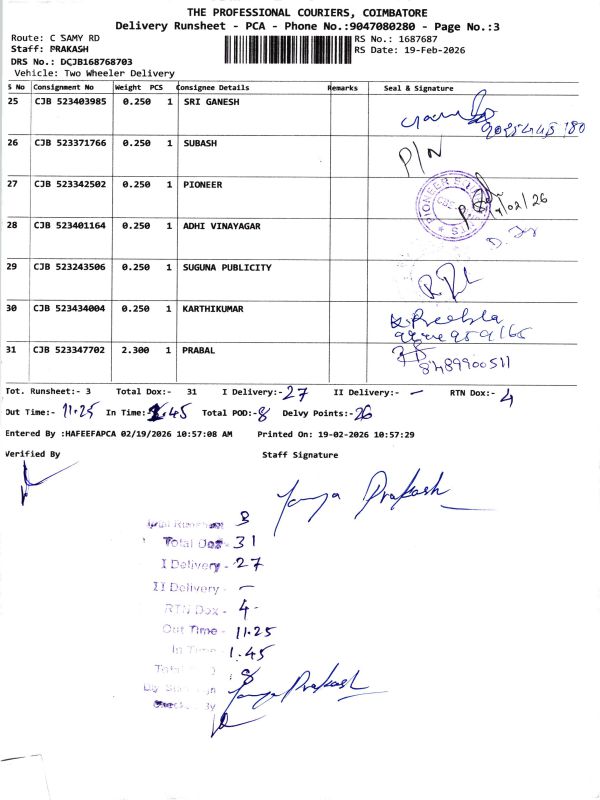 THE PROFESSIONAL COURIERS, COIMBATORE
Delivery Runsheet - PCA - Phone No.:9047080280 - Page No.:3
Route: C SAMY RD
RS No.: 1687687
Staff: PRAKASH
RS Date: 19-Feb-2026
DRS No.: DCJB168768703
Vehicle: Two Wheeler Delivery
S No Consignment No Weight PCS Consignee Details Remarks Seal & Signature
25 CJB 523403985 0.250 1 SRI GANESH
26 CJB 523371766 0.250 1 SUBASH P/N
27 CJB 523342502 0.250 1 PIONEER
28 CJB 523401164 0.250 1 ADHI VINAYAGAR
29 CJB 523243506 0.250 1 SUGUNA PUBLICITY
30 CJB 523434004 0.250 1 KARTHIKUMAR
31 CJB 523347702 2.300 1 PRABAL
8489900511
Tot. Runsheet:- 3 Total Dox:- 31 I Delivery:- 27 II Delivery:- - RTN Dox:- 4
Out Time:- 11.25 In Time:- 1.45 Total POD:- 8 Delvy Points:- 26
Entered By :HAFEEFAPCA 02/19/2026 10:57:08 AM Printed On: 19-02-2026 10:57:29
Verified By Staff Signature
Prakash
3
Total Dox - 31
I Delivery - 27
II Delivery - -
RTN Dox - 4
Out Time - 11.25
In Time - 1.45
8
Prakash